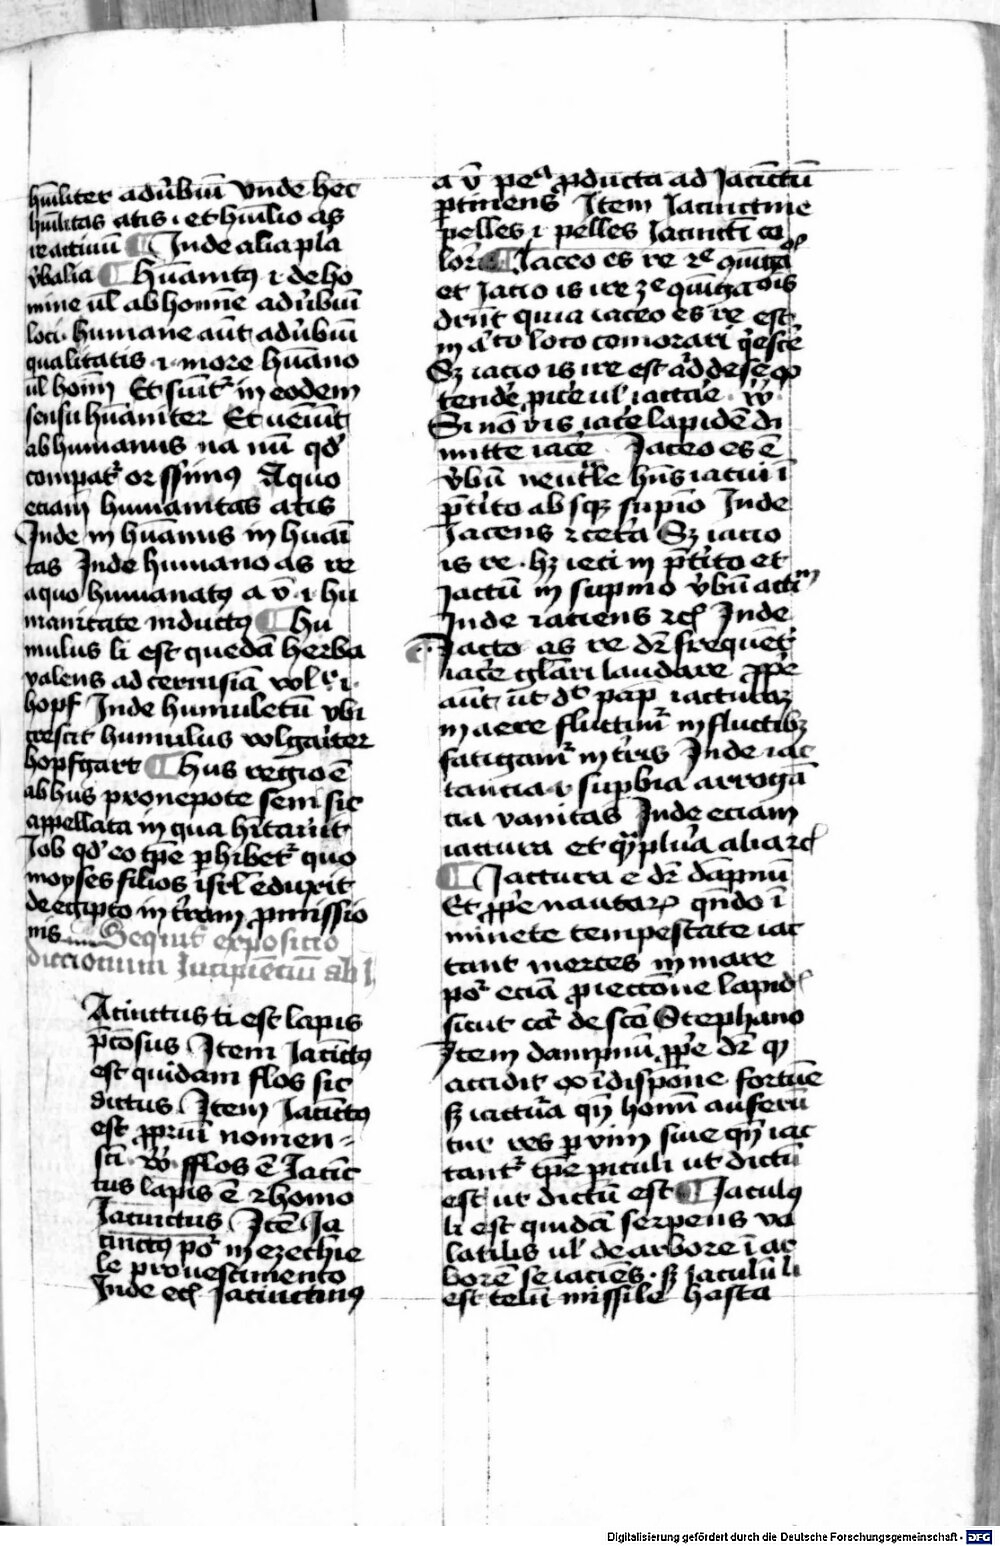 hūiliter adūbium vnde hec
hūilitas atis · et hūilio as
re actiuū ¶ Inde alia pla
v̄balia ¶ hūanitꝰ i de ho
mine ul̄ ab homīe adūbiū
loci · humane aūt adūbiū
qualitatis · i · more hūano
ul̄ homī Et sūit in eodem
sensu hūaniter Et ueniūt
ab humanus na nū qd̓
compat᷑ or ssimꝰ A quo
eciam humanitas atis
Inde in hūanus in huāi
tas Inde humano as re
a quo humanatꝰ a ū · i · hu
manitate inductꝰ ¶ Hu
mulus li est quedā herba
valens ad ceruisiā
hopf Inde humuletū vbi
crescit humulus volgariter
hopfgart ¶ Hus regio ē
ab hus pronepote sem sic
appellata in qua hītauit
Job qd̓ eo tp̄e ꝑhibet᷑ quo
moyses filios isrl̄ eduxit
de egipto in t̄ram ꝓmissio
nis Sequit᷑ exposicio
diccionum Incipiēciū ab I
Acinctus ti est lapis
p̄cōsus Item Iacīctꝰ
est quidam flos sic
dictus Item Iacīctꝰ
est ꝓpriū nomen
sci · v̄ · fflos ē Iacic
tus lapis ē ⁊ homo
Iacinctus Itē Ja
cinctꝰ po᷑ in ezechie
le pro uestimento
Inde ecī Jacinctinꝰ
a ū peᵃ ꝓducta ad Jacīctū
ꝑtinens Item Iacinctine
pelles i pelles Iacincti co
loris ¶ Iaceo es re
et Jacio is ire
dr̄nt quia iaceo es re est
in a̓to loco comorari q̓esce̓
Sꝫ iacio is ire est
tende̓ ul̓ iactae · v̄ ·
Si nō vis iace̓ lapidē di
mitte iace̓ Jaceo es ē
v̄bū neut̓le hn̄s iacui ī
p̄t̓ito absqꝫ supīo Inde
Jacens ⁊ cet̓a Sꝫ iacio
is re · hꝫ ieci in p̄t̓ito et
Jactū in supino v̄bū actīᵐ
Inde iaciens ⁊cꝭ Inde
Jacto as re dr̄ frequēt̓
iace̓ gl̄ari laudare ꝓpe̓
aūt ut dt pāp iactutꝫ
in aere fluctim᷑ in fluctibꝫ
fatigam᷑ in t̓ris Inde iac
tancia i sup̓bia arrogā
cia vanitas Inde eciam
iactura et plūa alia ⁊cꝭ
¶ Jactura e dr̄ dāpnū
Et ꝓpe̓ nautaꝝ qn̄do ī
minete tempestate iac
tant merces in mare
po᷑ eciā ꝓiectōne lapidꝭ
sicut cat᷑ de scō Stephano
Item dampnū ꝓpe̓ dr̄ qꝫ
accidit ex īdispōne fortūe
sꝫ iactura qn̄ homī auferū
tur res ꝑ vim siue qn̄ iac
tant᷑ tp̄e ꝑiculi ut dictū
est ut dictū est ¶ Jaculꝰ
li est quidā serpens vo
latilis ul̓ de arbore ī ar
borē se iaciēs · sꝫ Jaculū li
est telū missile hasta
Digitalisierung gefördert durch die Deutsche Forschungsgemeinschaft - DFG